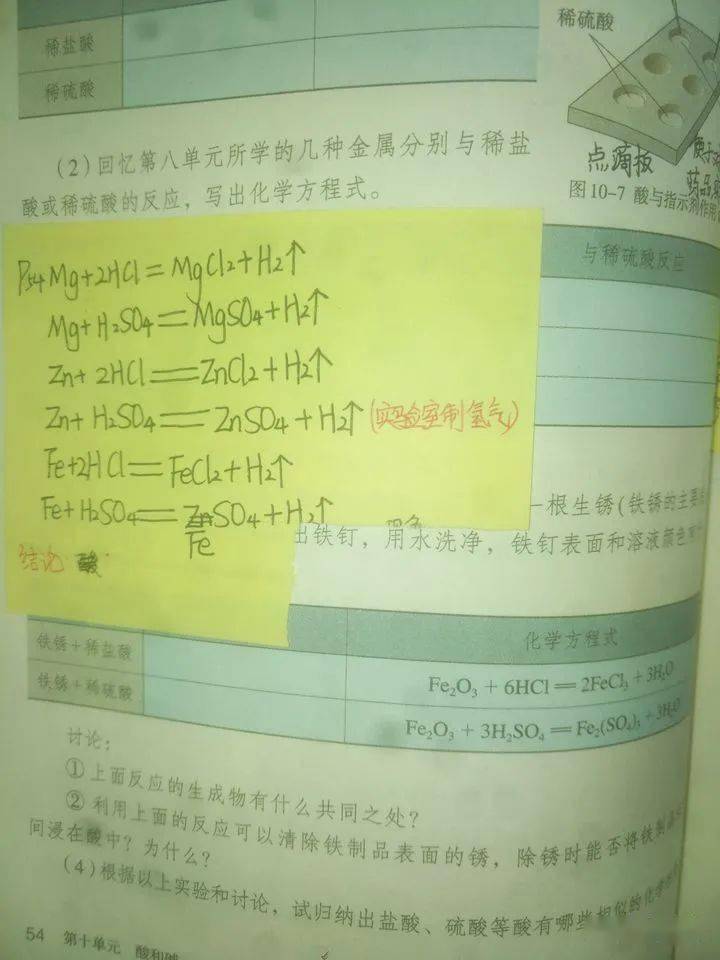 稀盐酸
稀硫酸
稀硫酸
(2)回忆第八单元所学的几种金属分别与稀盐
酸或稀硫酸的反应，写出化学方程式。
点滴板
图10-7 酸与指示剂作用
与稀硫酸反应
P54 Mg+2HCl=MgCl2+H2↑
Mg+H2SO4=MgSO4+H2↑
Zn+2HCl=ZnCl2+H2↑
Zn+H2SO4=ZnSO4+H2↑(实验室制氢气)
Fe+2HCl=FeCl2+H2↑
Fe+H2SO4=SO4+H2↑
Fe
结论 酸
一根生锈(铁锈的主要
出铁钉，用水洗净，铁钉表面和溶液颜色有
化学方程式
铁锈+稀盐酸
Fe₂O₃+6HCl=2FeCl₃+3H₂O
铁锈+稀硫酸
Fe₂O₃+3H₂SO₄=Fe₂(SO₄)₃+3H₂O
讨论：
①上面反应的生成物有什么共同之处？
②利用上面的反应可以清除铁制品表面的锈，除锈时能否将铁制品
间浸在酸中？为什么？
(4)根据以上实验和讨论，试归纳出盐酸、硫酸等酸有哪些相似的化学
54 第十单元 酸和碱